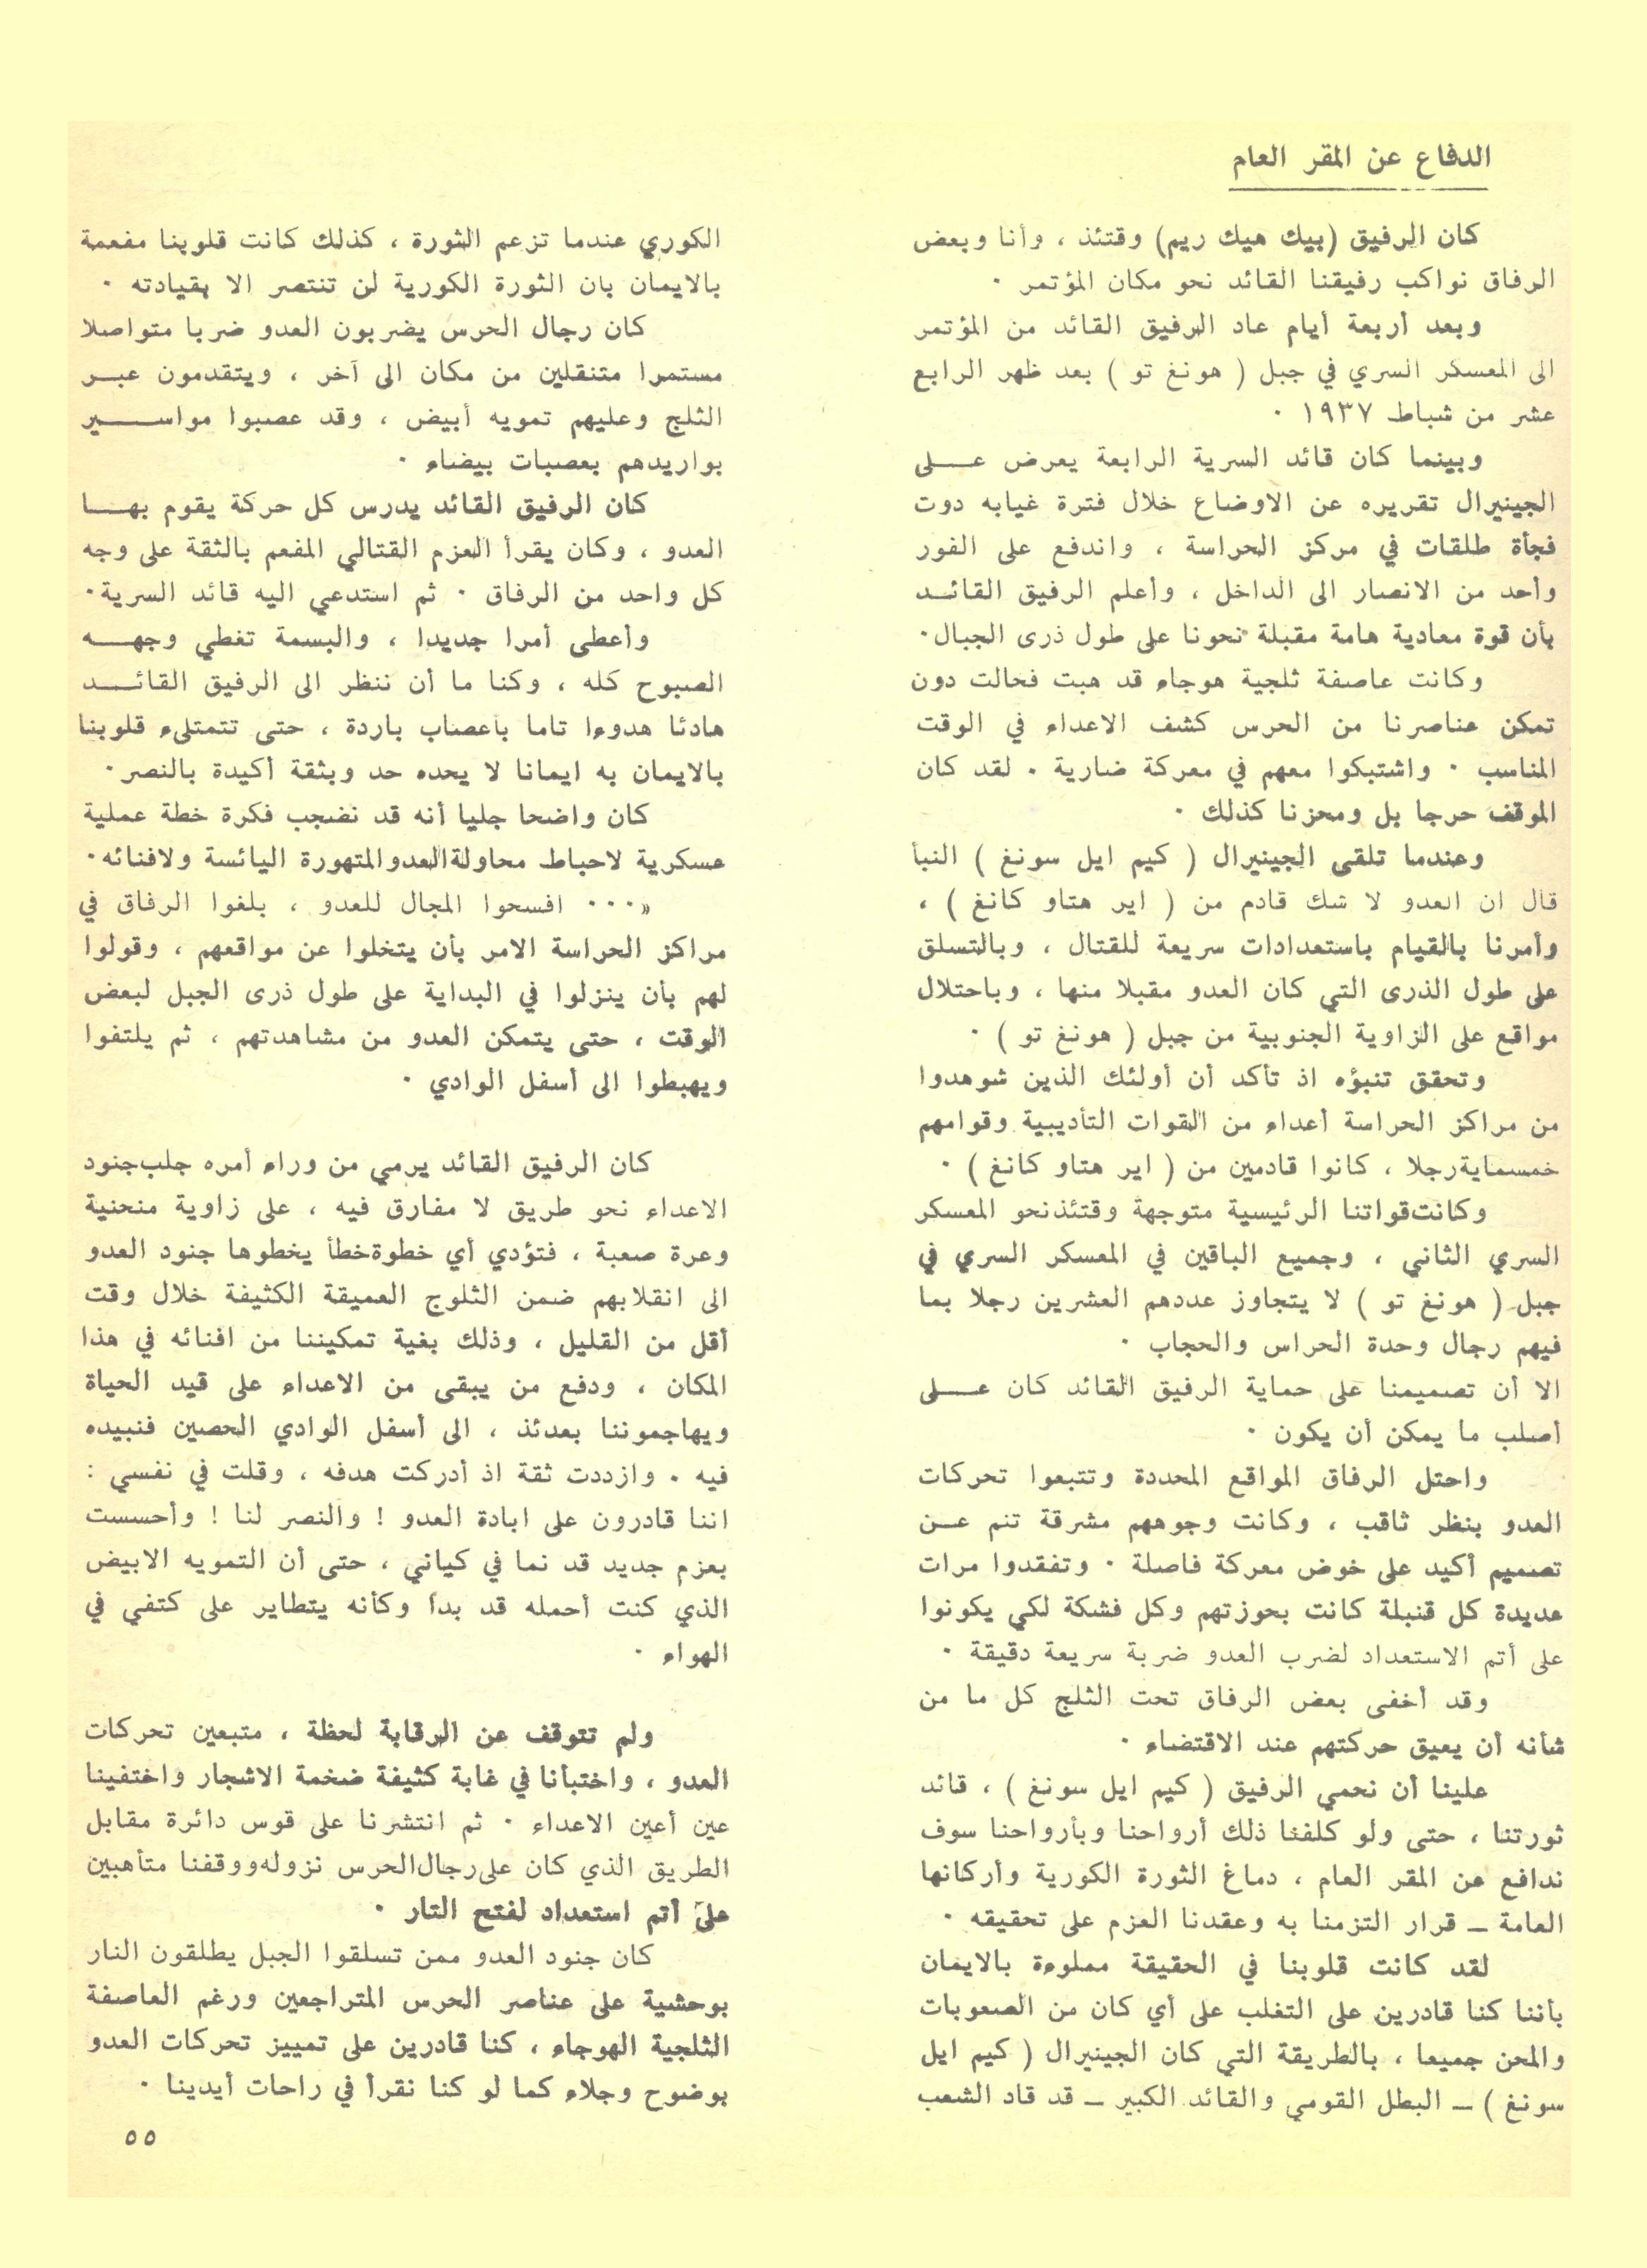 الدفاع عن المقر العام
كان الرفيق (بيك هيك ريم) وقتئذ ، وأنا وبعض
الرفاق نواكب رفيقنا القائد نحو مكان المؤتمر ٠
وبعد أربعة أيام عاد الرفيق القائد من المؤتمر
الى المعسكر السري في جبل ( هونغ تو ) بعد ظهر الرابع
عشر من شباط ١٩٣٧ ٠
وبينما كان قائد السرية الرابعة يعرض عـــلى
الجينيرال تقريره عن الاوضاع خلال فترة غيابه دوت
فجأة طلقات في مركز الحراسة ، واندفع على الفور
وأحد من الانصار الى الداخل ، وأعلم الرفيق القائـــد
بأن قوة معادية هامة مقبلة نحونا على طول ذرى الجبال٠
وكانت عاصفة ثلجية هوجاء قد هبت فحالت دون
تمكن عناصرنا من الحرس كشف الاعداء في الوقت
المناسب ٠ واشتبكوا معهم في معركة ضارية ٠ لقد كان
الموقف حرجا بل ومحزنا كذلك ٠
وعندما تلقى الجينيرال ( كيم ايل سونغ ) النبأ
قال ان العدو لا شك قادم من ( اير هتاو كانغ ) ،
وأمرنا بالقيام باستعدادات سريعة للقتال ، وبالتسلق
على طول الذرى التي كان العدو مقبلا منها ، وباحتلال
مواقع على الزاوية الجنوبية من جبل ( هونغ تو ) ٠
وتحقق تنبؤه اذ تأكد أن أولئك الذين شوهدوا
من مراكز الحراسة أعداء من القوات التأديبية وقوامهم
خمسماية رجلا ، كانوا قادمين من ( اير هتاو كانغ ) ٠
وكانت قواتنا الرئيسية متوجهة وقتئذ نحو المعسكر
السري الثاني ، وجميع الباقين في المعسكر السري في
جبل ( هونغ تو ) لا يتجاوز عددهم العشرين رجلا بما
فيهم رجال وحدة الحراس والحجاب ٠
الا أن تصميمنا على حماية الرفيق القائد كان عـــلى
أصلب ما يمكن أن يكون ٠
واحتل الرفاق المواقع المحددة وتتبعوا تحركات
العدو بنظر ثاقب ، وكانت وجوههم مشرقة تنم عـــن
تصميم أكيد على خوض معركة فاصلة ٠ وتفقدوا مرات
عديدة كل قنبلة كانت بحوزتهم وكل فشكة لكي يكونوا
على أتم الاستعداد لضرب العدو ضربة سريعة دقيقة ٠
وقد أخفى بعض الرفاق تحت الثلج كل ما من
شأنه أن يعيق حركتهم عند الاقتضاء ٠
علينا أن نحمي الرفيق ( كيم ايل سونغ ) ، قائد
ثورتنا ، حتى ولو كلفنا ذلك أرواحنا وبأرواحنا سوف
ندافع عن المقر العام ، دماغ الثورة الكورية وأركانها
العامة ــ قرار التزمنا به وعقدنا العزم على تحقيقه ٠
لقد كانت قلوبنا في الحقيقة مملوءة بالايمان
بأننا كنا قادرين على التغلب على أي كان من الصعوبات
والمحن جميعا ، بالطريقة التي كان الجينيرال ( كيم ايل
سونغ ) ــ البطل القومي والقائد الكبير ــ قد قاد الشعب
الكوري عندما تزعم الثورة ، كذلك كانت قلوبنا مفعمة
بالايمان بان الثورة الكورية لن تنتصر الا بقيادته ٠
كان رجال الحرس يضربون العدو ضربا متواصلا
مستمرا متنقلين من مكان الى آخر ، ويتقدمون عبـــر
الثلج وعليهم تمويه أبيض ، وقد عصبوا مواســـــير
بواريدهم بعصبات بيضاء ٠
كان الرفيق القائد يدرس كل حركة يقوم بهـــا
العدو ، وكان يقرأ العزم القتالي المفعم بالثقة على وجه
كل واحد من الرفاق ٠ ثم استدعي اليه قائد السرية٠
وأعطى أمرا جديدا ، والبسمة تغطي وجهـــه
الصبوح كله ، وكنا ما أن ننظر الى الرفيق القائـــد
هادئا هدوءا تاما باعصاب باردة ، حتى تتمتلىء قلوبنا
بالايمان به ايمانا لا يحده حد وبثقة أكيدة بالنصر ٠
كان واضحا جليا أنه قد نضجب فكرة خطة عملية
عسكرية لاحباط محاولة العدو المتهورة اليائسة ولافنائه٠
«٠٠٠ افسحوا المجال للعدو ، بلغوا الرفاق في
مراكز الحراسة الامر بأن يتخلوا عن مواقعهم ، وقولوا
لهم بأن ينزلوا في البداية على طول ذرى الجبل لبعض
الوقت ، حتى يتمكن العدو من مشاهدتهم ، ثم يلتفوا
ويهبطوا الى أسفل الوادي ٠
كان الرفيق القائد يرمي من وراء أمره جلب جنود
الاعداء نحو طريق لا مفارق فيه ، على زاوية منحنية
وعرة صعبة ، فتؤدي أي خطوة خطأ يخطوها جنود العدو
الى انقلابهم ضمن الثلوج العميقة الكثيفة خلال وقت
أقل من القليل ، وذلك بغية تمكيننا من افنائه في هذا
المكان ، ودفع من يبقى من الاعداء على قيد الحياة
ويهاجموننا بعدئذ ، الى أسفل الوادي الحصين فنبيده
فيه ٠ وازددت ثقة اذ أدركت هدفه ، وقلت في نفسي :
اننا قادرون على ابادة العدو ! والنصر لنا ! وأحسست
بعزم جديد قد نما في كياني ، حتى أن التمويه الابيض
الذي كنت أحمله قد بدأ وكأنه يتطاير على كتفي في
الهواء ٠
ولم تتوقف عن الرقابة لحظة ، متبعين تحركات
العدو ، واختبأنا في غابة كثيفة ضخمة الاشجار واختفينا
عين أعين الاعداء ٠ ثم انتشرنا على قوس دائرة مقابل
الطريق الذي كان على رجال الحرس نزوله ووقفنا متأهبين
على أتم استعداد لفتح التار ٠
كان جنود العدو ممن تسلقوا الجبل يطلقون النار
بوحشية على عناصر الحرس المتراجعين ورغم العاصفة
الثلجية الهوجاء ، كنا قادرين على تمييز تحركات العدو
بوضوح وجلاء كما لو كنا نقرأ في راحات أيدينا ٠
٥٥